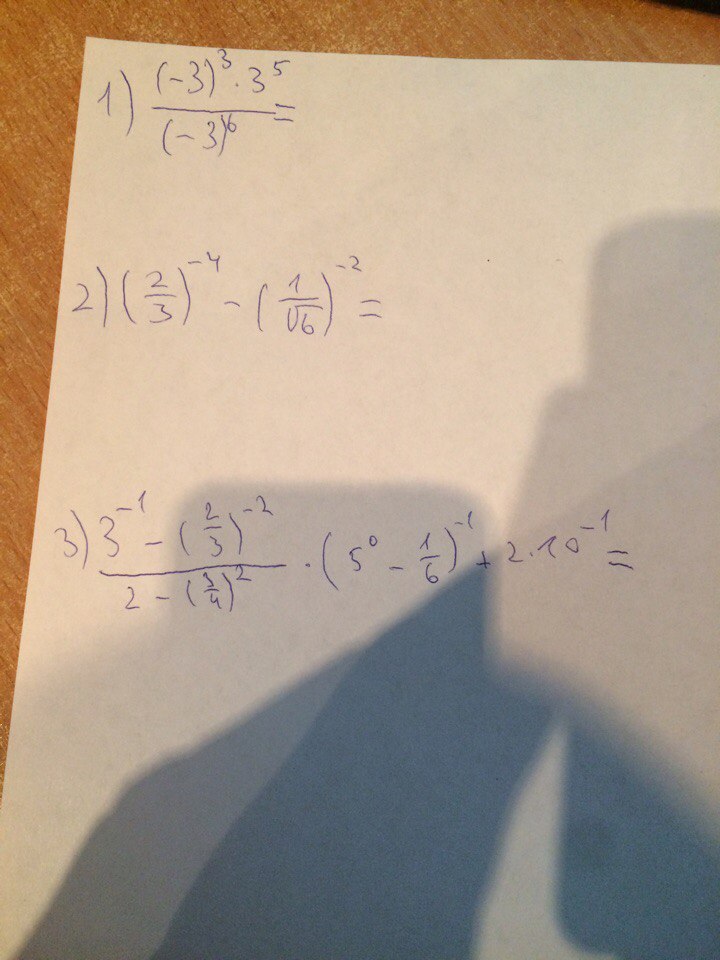 1) \frac{(-3)^3 \cdot 3^5}{(-3)^6} =
2) (\frac{2}{3})^{-4} - (\frac{1}{\sqrt{6}})^{-2} =
3) \frac{3^{-1} - (\frac{2}{3})^{-2}}{2 - (\frac{3}{4})^2} \cdot (5^0 - \frac{1}{6})^{-1} + 2 \cdot 10^{-1} =